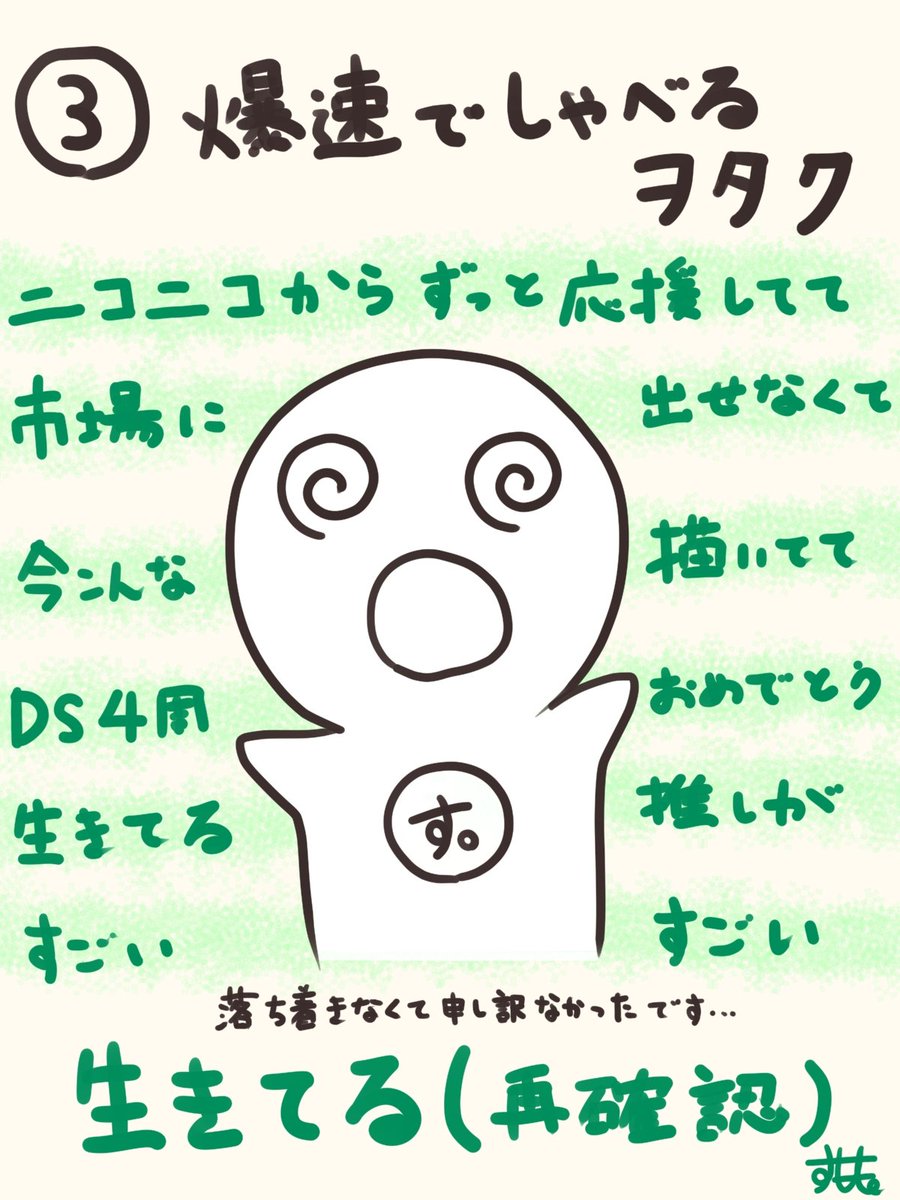 ③ 爆速でしゃべる
ヲタク
ニコニコからずっと応援してて
市場に 出せなくて
今こんな 描いてて
DS4周 おめでとう
生きてる 推しが
すごい すごい
す。
落ち着きなくて申し訳なかったです...
生きてる(再確認)